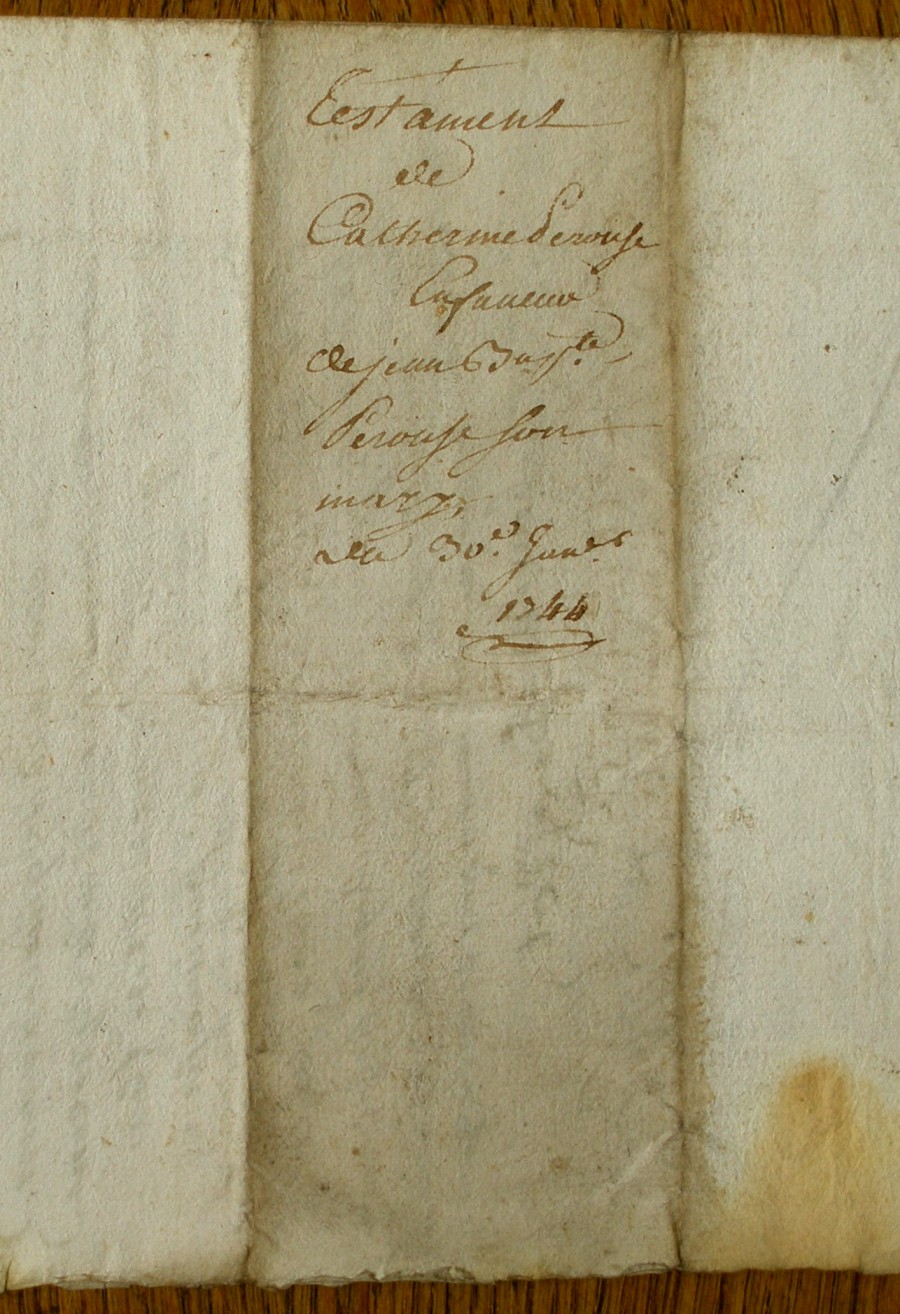 Testament
de
Catherine Perouse
En faueur
de jean Bap.te
Perouse son
mary,
du 30.e Janv.r
1744